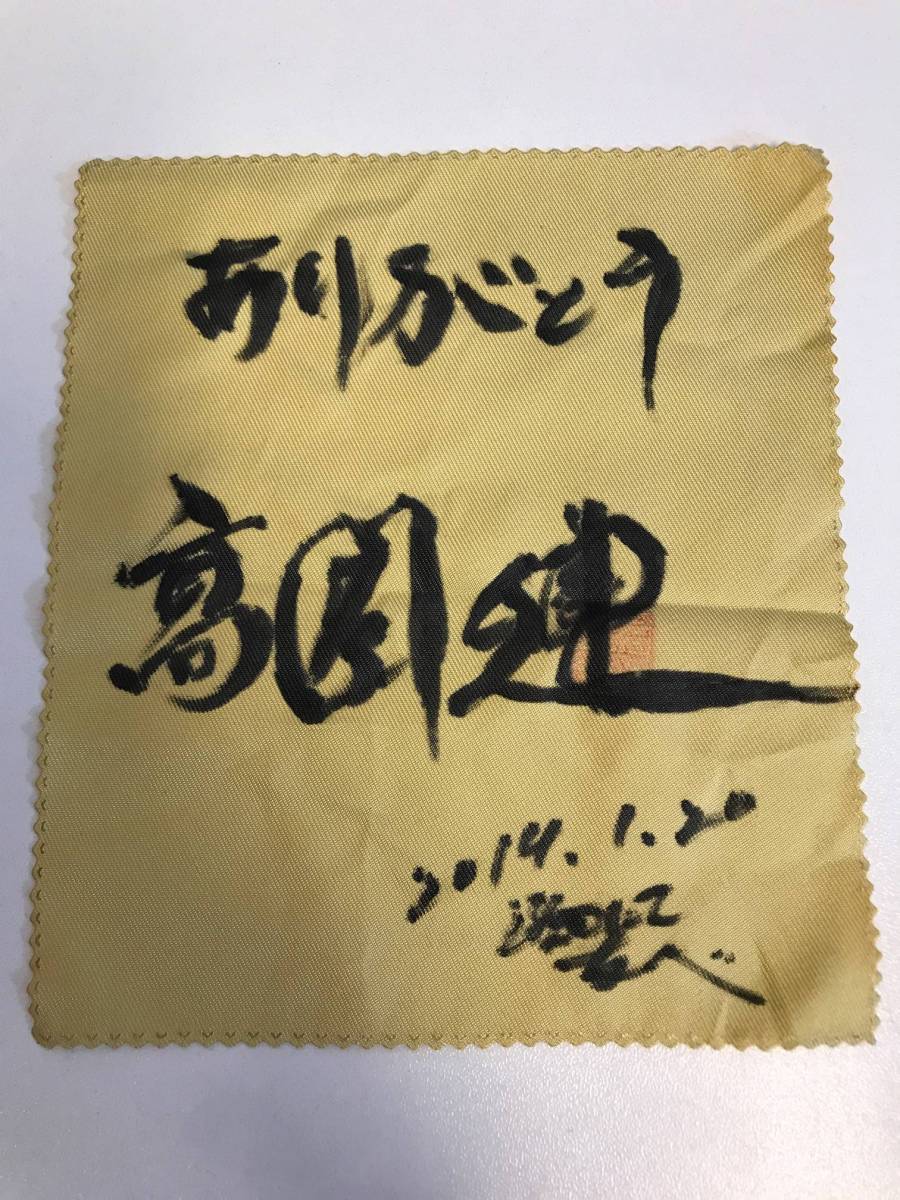 ありがとう
高岡建
2014.1.20